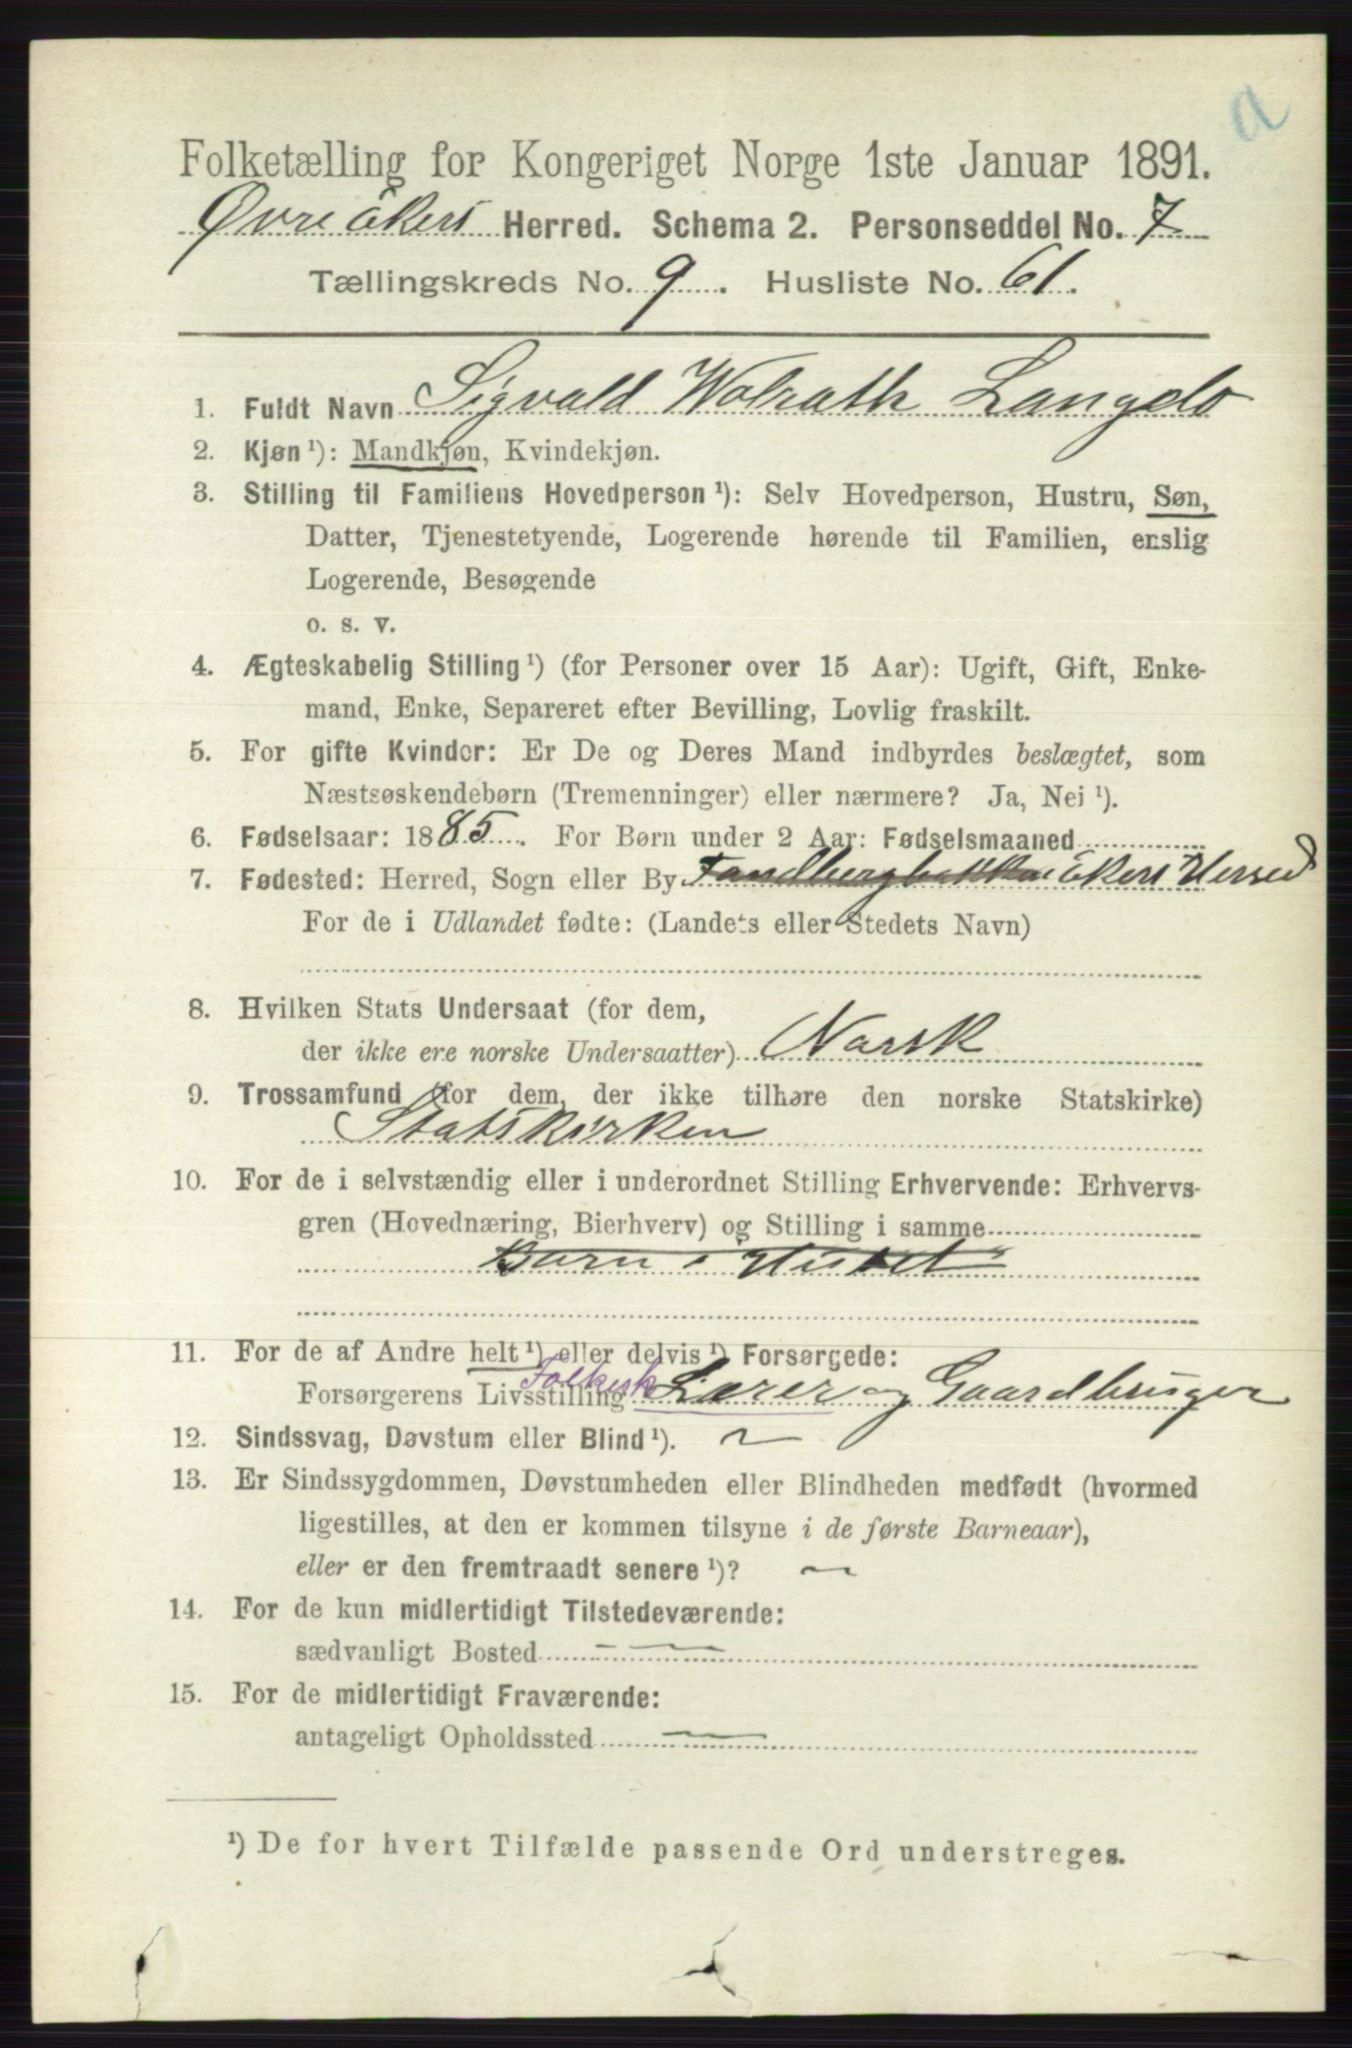 a
Folketælling for Kongeriget Norge 1ste Januar 1891.
Øvre Ekers Herred. Schema 2. Personseddel No. 7
Tællingskreds No. 9. Husliste No. 61.
1. Fuldt Navn Sigvald Wolrath Langelo
2. Kjøn ¹): Mandkjøn, Kvindekjøn.
3. Stilling til Familiens Hovedperson ¹): Selv Hovedperson, Hustru, Søn,
Datter, Tjenestetyende, Logerende hørende til Familien, enslig
Logerende, Besøgende
o. s. v.
4. Ægteskabelig Stilling ¹) (for Personer over 15 Aar): Ugift, Gift, Enke-
mand, Enke, Separeret efter Bevilling, Lovlig fraskilt.
5. For gifte Kvinder: Er De og Deres Mand indbyrdes beslægtet, som
Næstsøskendebørn (Tremenninger) eller nærmere? Ja, Nei ¹).
6. Fødselsaar: 1885. For Børn under 2 Aar: Fødselsmaaned
7. Fødested: Herred, Sogn eller By Ekers Herred
For de i Udlandet fødte: (Landets eller Stedets Navn)
8. Hvilken Stats Undersaat (for dem,
der ikke ere norske Undersaatter) Norsk
9. Trossamfund (for dem, der ikke tilhøre den norske Statskirke)
Statskirken
10. For de i selvstændig eller i underordnet Stilling Erhvervende: Erhvervs-
gren (Hovednæring, Bierhverv) og Stilling i samme
Barn i Huset
11. For de af Andre helt ¹) eller delvis ¹) Forsørgede:
Forsørgerens Livsstilling Folkesk Lærer og Gaardbruger
12. Sindssvag, Døvstum eller Blind ¹). ~
13. Er Sindssygdommen, Døvstumheden eller Blindheden medfødt (hvormed
ligestilles, at den er kommen tilsyne i de første Barneaar),
eller er den fremtraadt senere ¹)? —
14. For de kun midlertidigt Tilstedeværende:
sædvanligt Bosted — —
15. For de midlertidigt Fraværende:
antageligt Opholdssted —
¹) De for hvert Tilfælde passende Ord understreges.